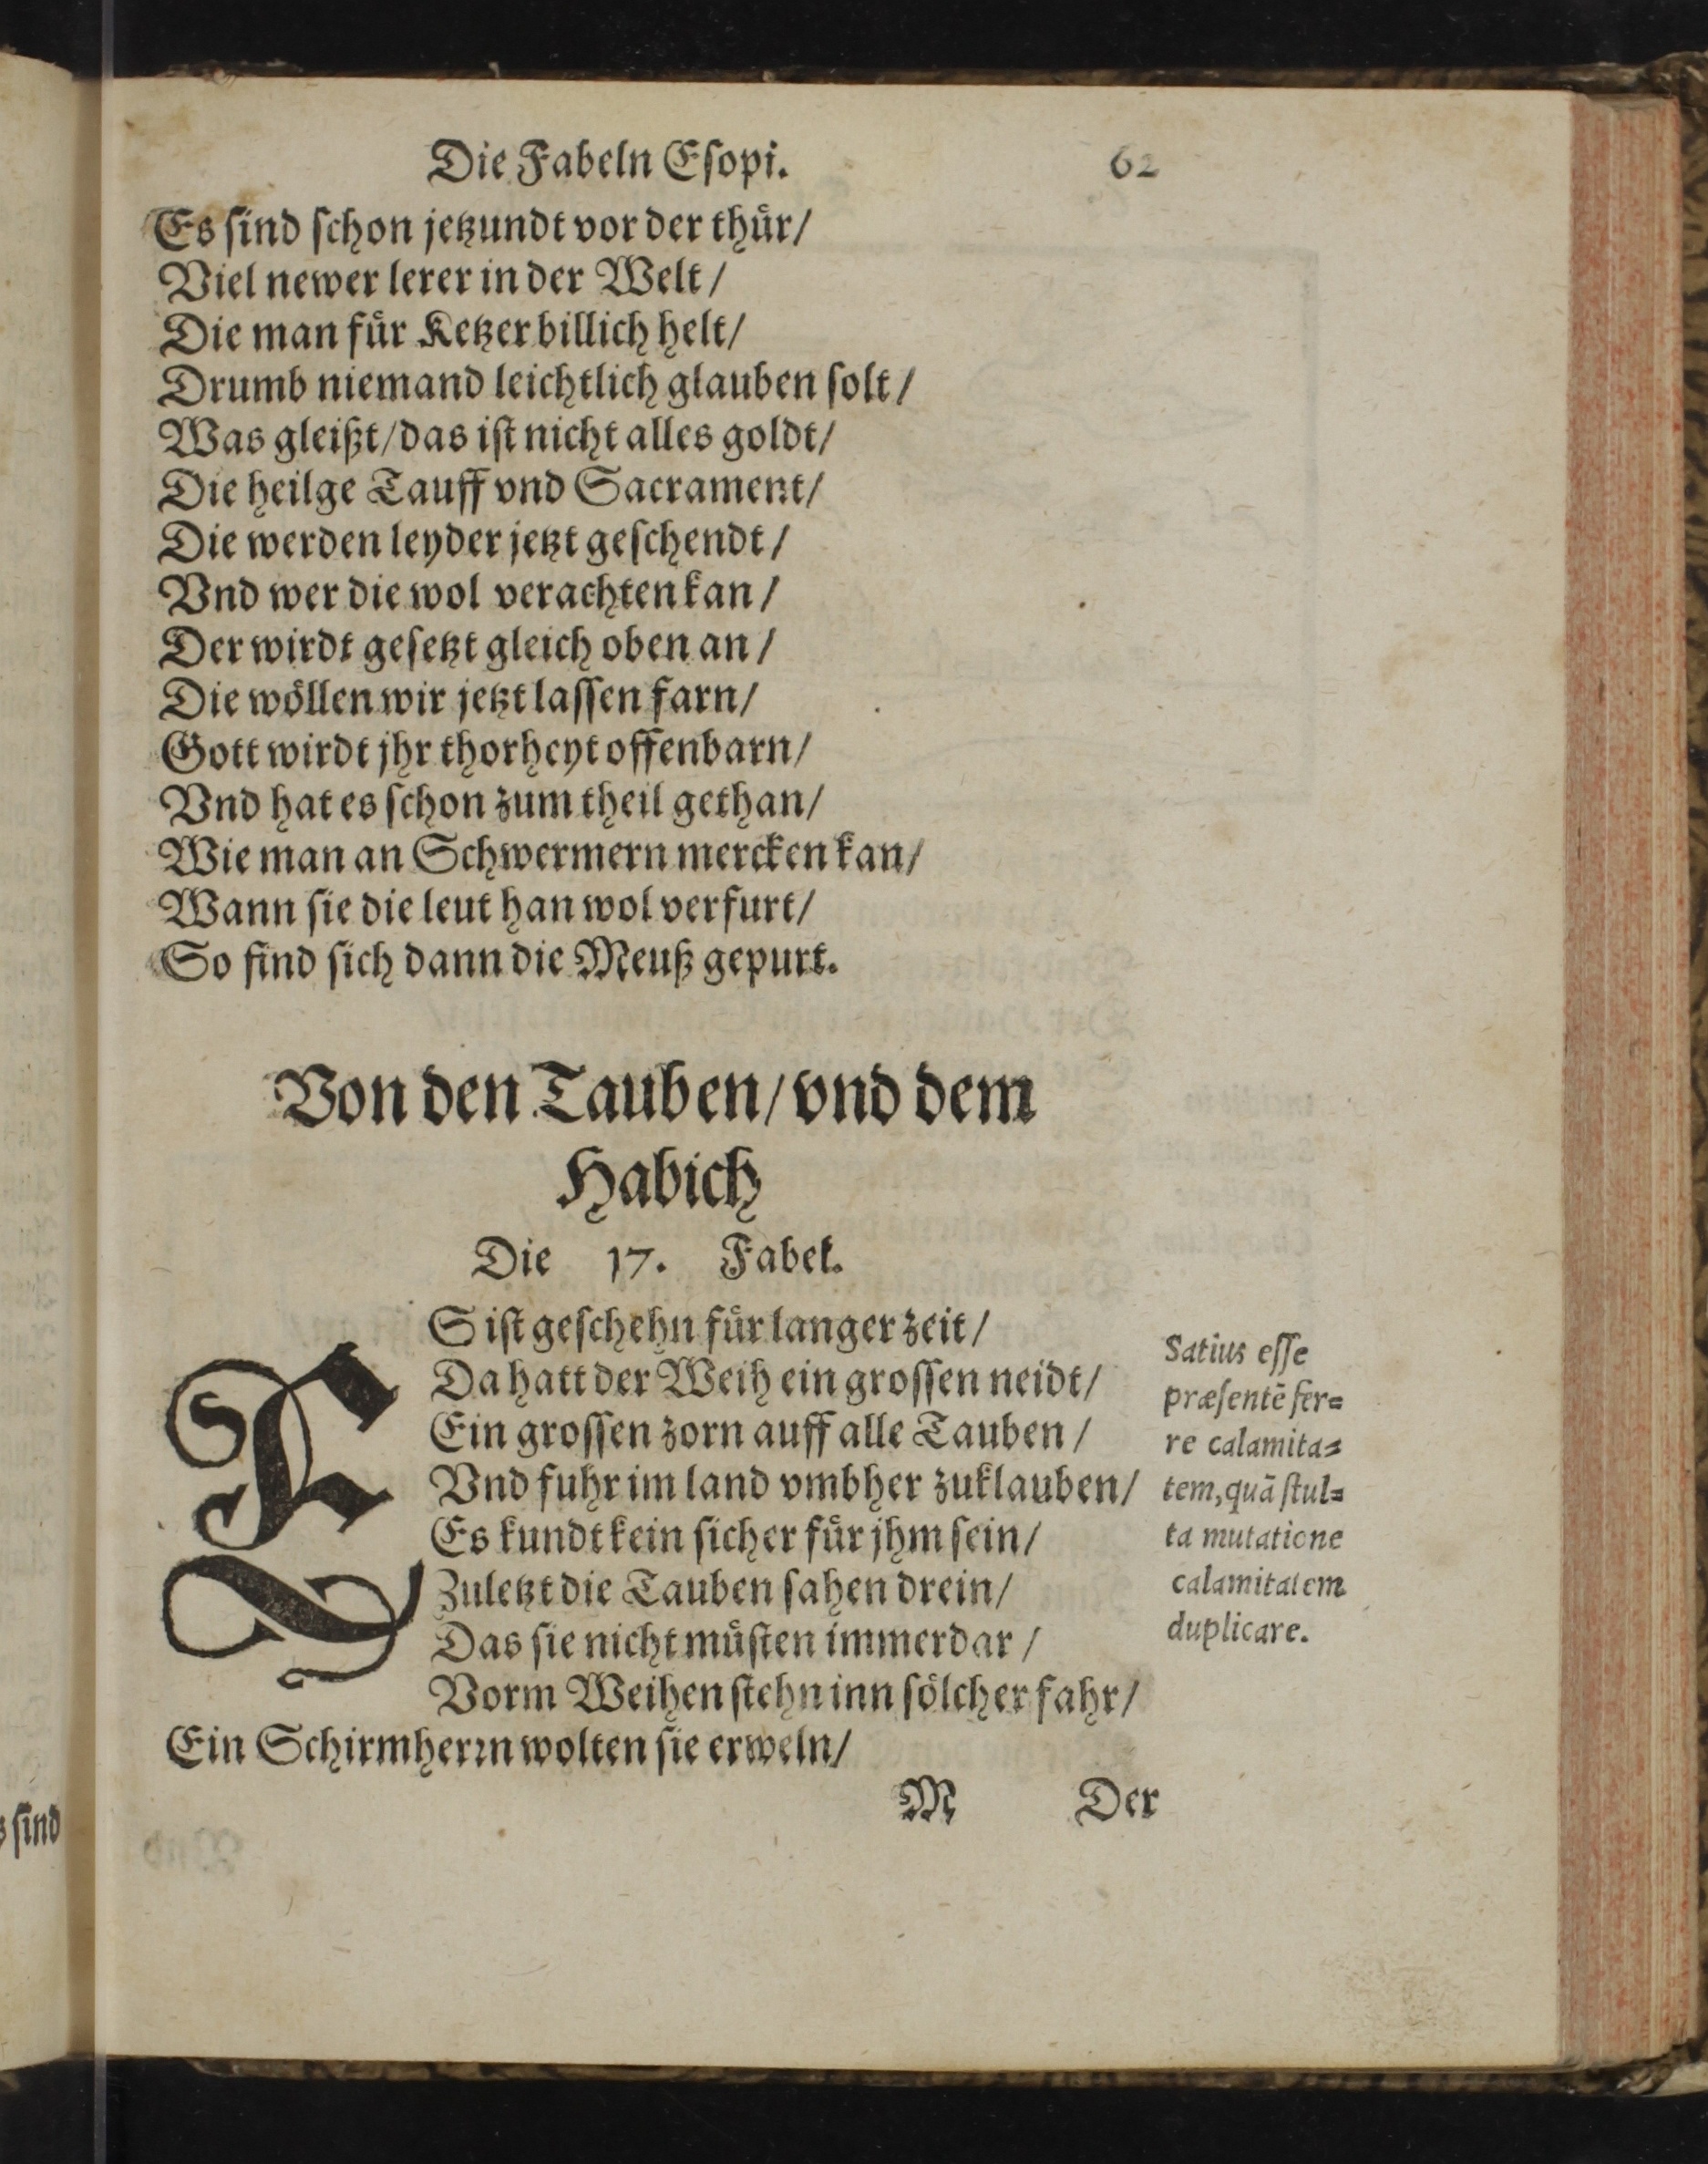 Die Fabeln Eſopi. 62
Es ſind ſchon jetzundt vor der thuͤr/
Viel newer lerer in der Welt/
Die man fuͤr Ketzer billich helt/
Drumb niemand leichtlich glauben ſolt/
Was gleißt/das iſt nicht alles goldt/
Die heilge Tauff vnd Sacrament/
Die werden leyder jetzt geſchendt/
Vnd wer die wol verachten kan/
Der wirdt geſetzt gleich oben an/
Die woͤllen wir jetzt laſſen farn/
Gott wirdt jhr thorheyt offenbarn/
Vnd hat es ſchon zum theil gethan/
Wie man an Schwermern mercken kan/
Wann ſie die leut han wol verfurt/
So find ſich dann die Meuß gepurt.
Von den Tauben/vnd dem
Habich
Die 17. Fabel.
ES iſt geſchehn fuͤr langer zeit/
Da hatt der Weih ein groſſen neidt/
Ein groſſen zorn auff alle Tauben/
Vnd fuhr im land vmbher zuklauben/
Es kundt kein ſicher fuͤr jhm ſein/
Zuletzt die Tauben ſahen drein/
Das ſie nicht muͤſten immerdar/
Vorm Weihen ſtehn inn ſoͤlcher fahr/
Ein Schirmherꝛn wolten ſie erweln/
Satius eſſe
præſentē fer=
re calamita=
tem, quā ſtul=
ta mutatione
calamitatem
duplicare.
M Der
s ſind